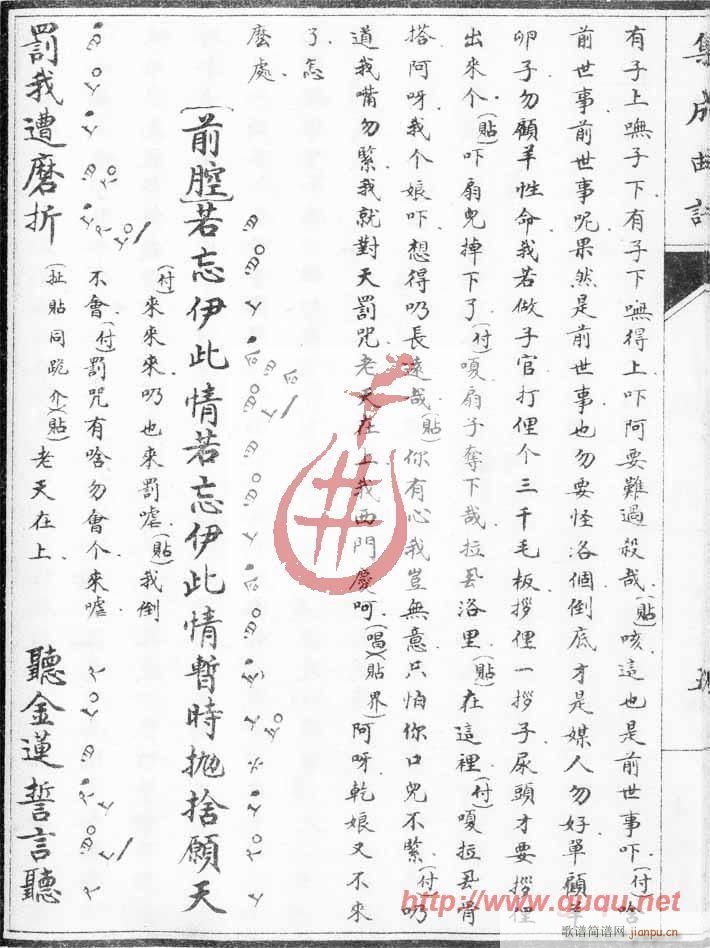 集成曲譜
有子上嘸子下有子下嘸得上吓阿要難過殺哉(貼)咳這也是前世事吓(付)啥
前世事前世事呢果然是前世事也勿要怪洛個倒底才是媒人勿好單顧羊
卵子勿顧羊性命我若做子官打俚个三千毛板拶俚一拶子尿頭才要拶俚
出來个(貼)吓扇兒掉下了(付)嗄扇子奪下哉拉厾洛里(貼)在這裡(付)嗄拉厾脊
搭阿呀我个娘吓想得吶長遠哉(貼)你有心我豈無意只怕你口兒不緊(付)吶
道我嘴勿緊我就對天罰咒老天在上我西門慶呵(唱)(貼界)阿呀乾娘又不來
了怎
麼處
(前腔)若忘伊此情若忘伊此情暫時拋捨願天
罰我遭磨折
(付)來來來吶也來罰噓(貼)我倒
不會(付)罰咒有啥勿會个來噓
(扯貼同跪介)(貼)老天在上
聽金蓮誓言聽
http://www.ququ.net
歌谱简谱网
jianpu.cn